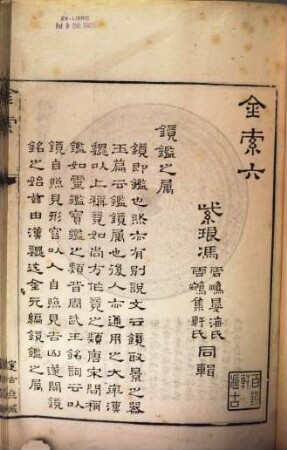 金索六
紫琅馮
雲鵬晏海氏
雲鵷集軒氏
同輯
鏡鑑之屬
鏡即鑑也然亦有別說文云鏡取景之器
玉篇云鑑鏡屬也後人亦通用之大率漢
魏以上稱竟如尚方佗竟之類唐宋間稱
鑑如靈鑑寶鑑之類昔周武王銘詞云以
鏡自照見形容以人自照見吉凶遂開鏡
銘之始首由漢魏迄金元編鏡鑑之屬
金索